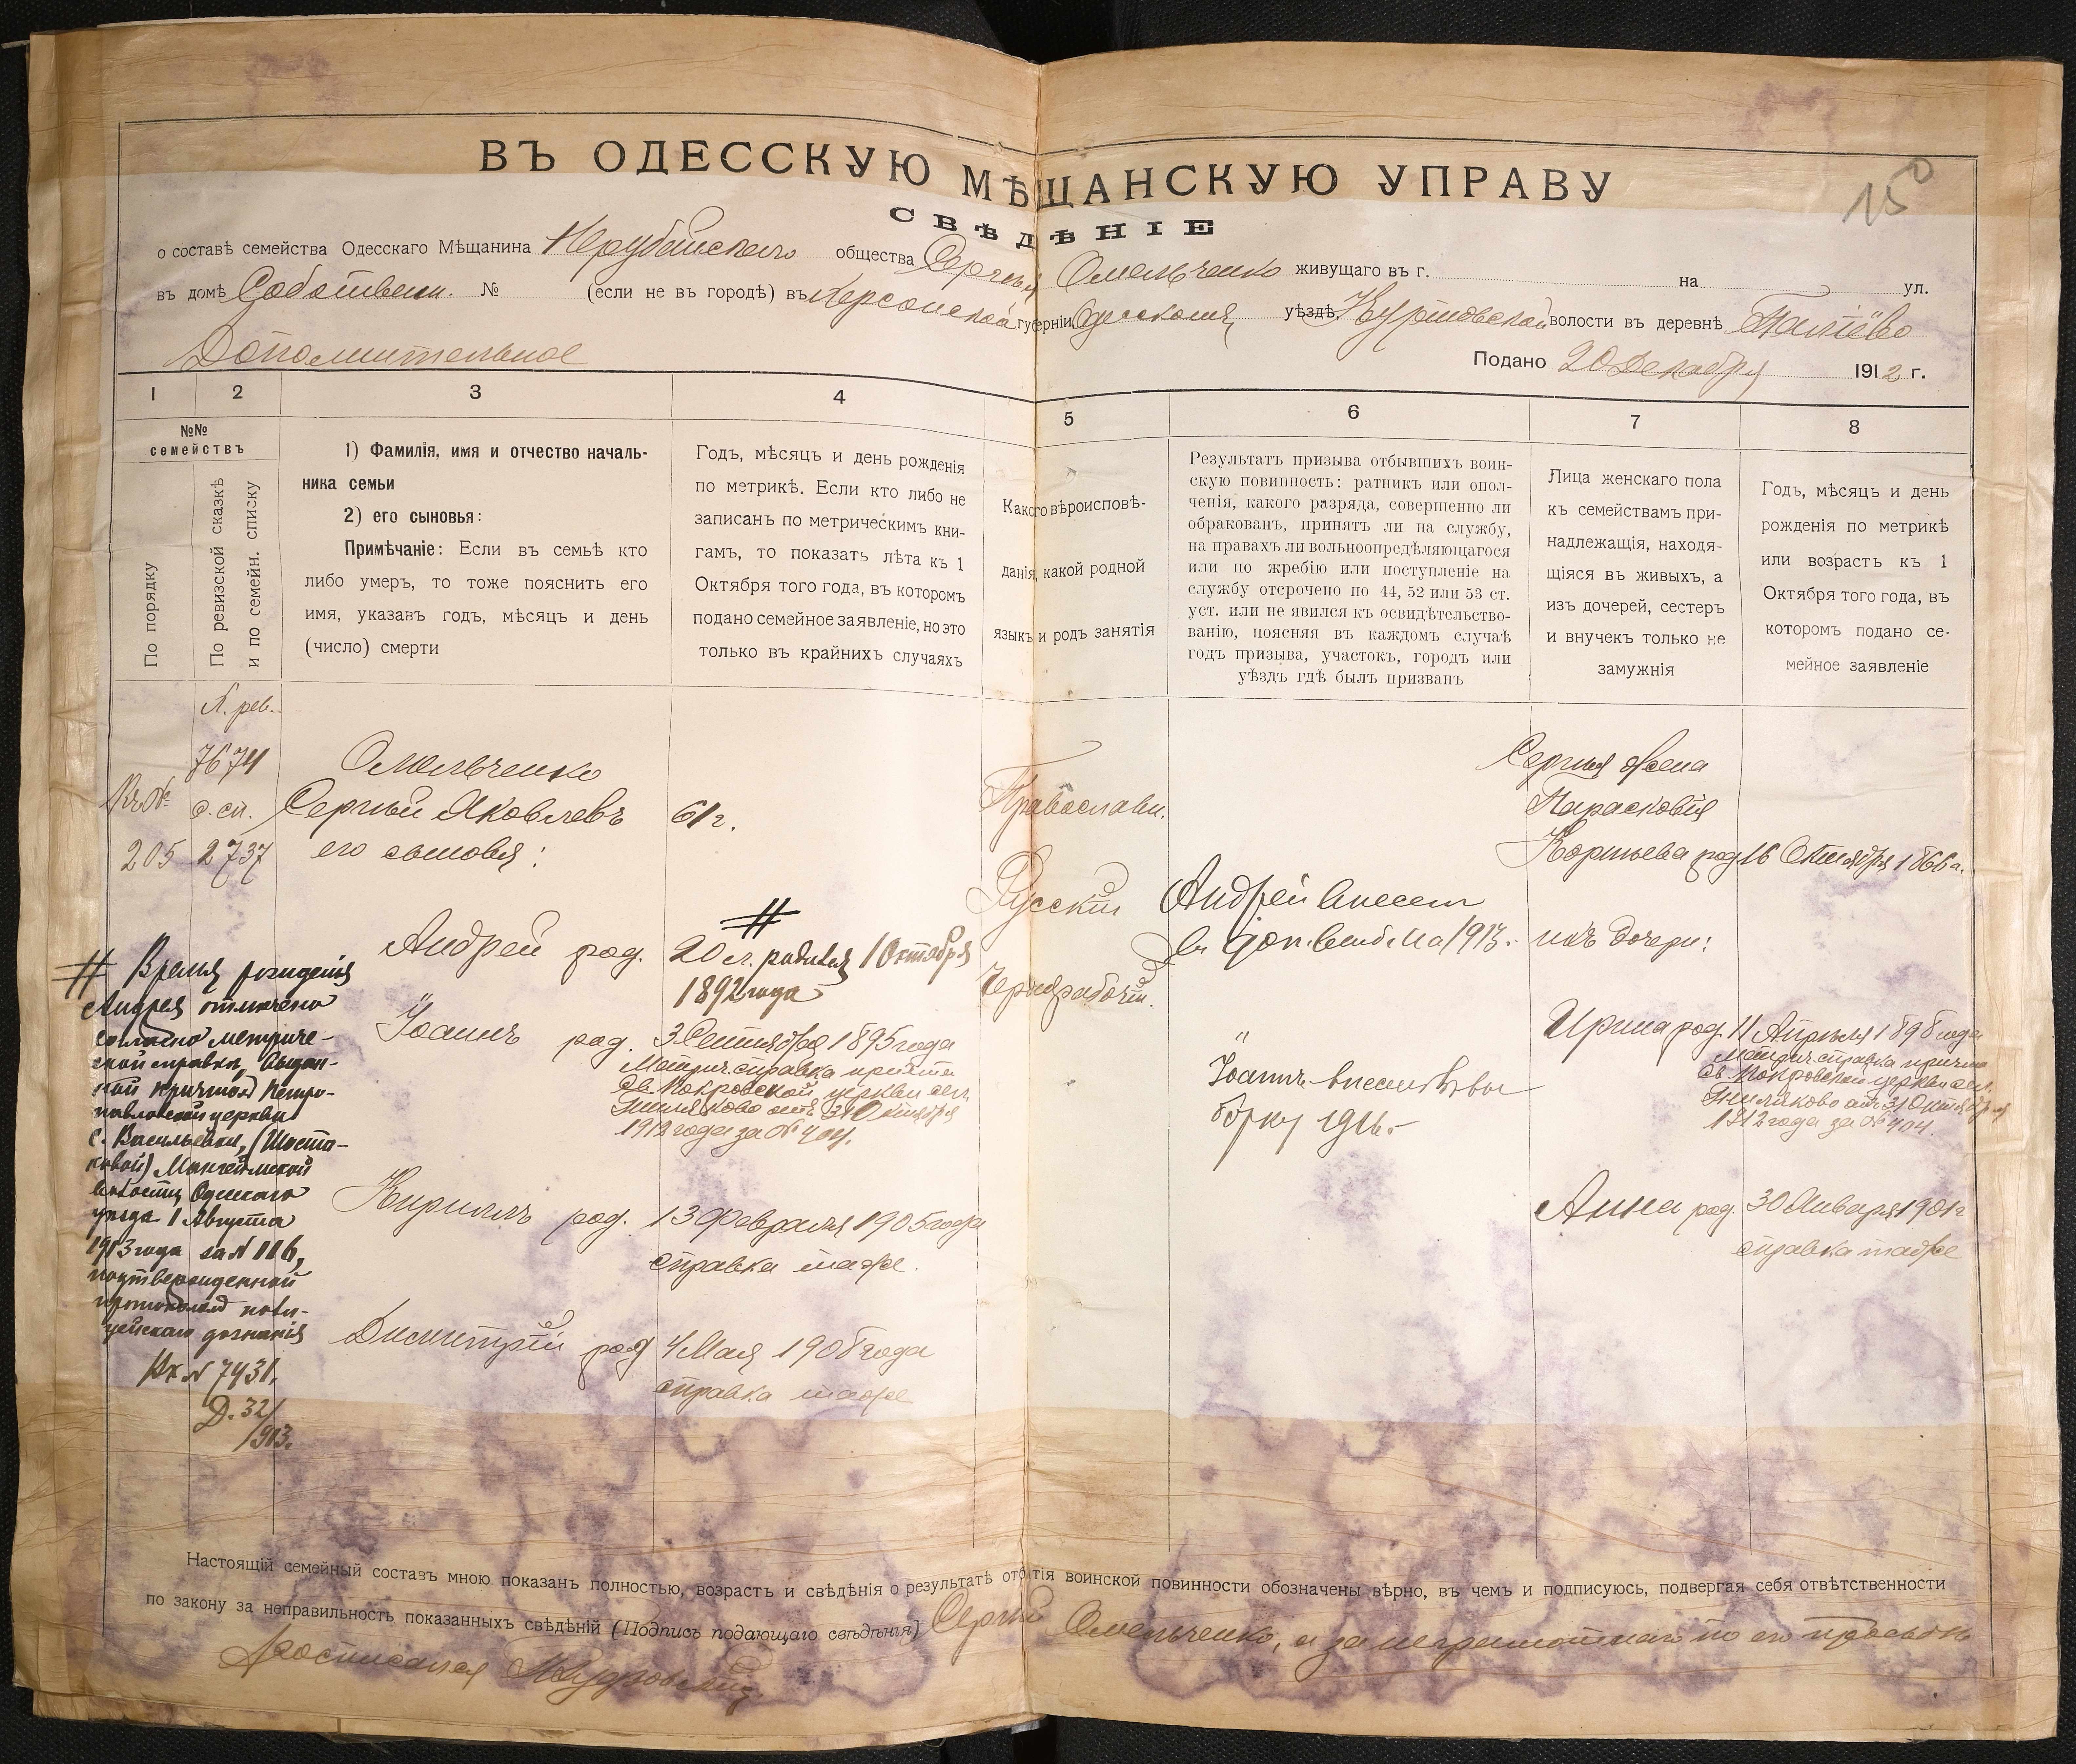 150
ВЪ ОДЕССКУЮ МѢЩАНСКУЮ УПРАВУ
СВѢДѢНІЕ
о составѣ семейства Одесскаго Мѣщанина Нерубайскаго общества Сергѣя Омельченко живущаго въ г. на ул.
въ домѣ Собствен. № (если не въ городѣ) въ Херсонской губерніи, Одесскомъ уѣздѣ, волости въ деревнѣ
Дополнительное
Подано 20 Декабря 1912 г.
1 2 3 4 5 6 7 8
№№ семействъ
По порядку
По ревизской сказкѣ и по семейн. списку
1) Фамилія, имя и отчество началь-
ника семьи
2) его сыновья:
Примѣчаніе: Если въ семьѣ кто
либо умеръ, то тоже пояснить его
имя, указавъ годъ, мѣсяцъ и день
(число) смерти
Годъ, мѣсяцъ и день рожденія
по метрикѣ. Если кто либо не
записанъ по метрическимъ кни-
гамъ, то показать лѣта къ 1
Октября того года, въ которомъ
подано семейное заявленіе, но это
только въ крайнихъ случаяхъ
Какого вѣроисповѣ-
данія, какой родной
языкъ и родъ занятія
Результатъ призыва отбывшихъ воин-
скую повинность: ратникъ или опол-
ченія, какого разряда, совершенно ли
обракованъ, принятъ ли на службу,
на правахъ ли вольноопредѣляющагося
или по жребію или поступленіе на
службу отсрочено по 44, 52 или 53 ст.
уст. или не явился къ освидѣтельство-
ванію, поясняя въ каждомъ случаѣ
годъ призыва, участокъ, городъ или
уѣздъ гдѣ былъ призванъ
Лица женскаго пола
къ семействамъ при-
надлежащія, находя-
щіяся въ живыхъ, а
изъ дочерей, сестеръ
и внучекъ только не
замужнія
Годъ, мѣсяцъ и день
рожденія по метрикѣ
или возрастъ къ 1
Октября того года, въ
которомъ подано се-
мейное заявленіе
рев.
7674
с. сп.
205 2737
Омельченко
Сергѣй Яковлевъ 61 г.
его сыновья:
Андрей род. 20 л. родился 1 Октября
1892 года
Іоаннъ род. 3 Сентября 1895 года
Метрич. справка причта
Св. Покровской церкви сел.
Гниляково отъ 31 Октября
1912 года за № 404.
Кириллъ род. 13 Февраля 1905 года
справка таже.
Димитрій род 4 Мая 1908 года
справка таже
# Время рожденія
Андрея отмечено
согласно метриче-
ской справки, выдан-
ной причтомъ Петро-
павловской церкви
с. Васильевки, (Шоста-
ковой) Мангеймской
волости, Одесскаго
уѣзда 1 Августа
1913 года за № 116,
подтвержденной
протоколомъ поли-
цейскаго дознанія
Вх № 7431.
Д. 32/1913.
Православн.
Русскій
Чернорабочій.
Андрей внесенъ
въ 1913.
"
Іоаннъ внесенъ въ вы
борку 1916.
Сергѣя жена
Парасковія
Корнѣева род. 16 Октября 1866 г.
ихъ дочери:
Ирина род. 11 Апрѣля 1898 года
Метрич. справка причта
Св. Покровской церкви сел.
Гниляково отъ 31 Октября
1912 года за № 404.
Анна род. 30 Января 1901 г
справка таже
Настоящій семейный составъ мною показанъ полностью, возрастъ и свѣдѣнія о результатѣ отбытія воинской повинности обозначены вѣрно, въ чемъ и подписуюсь, подвергая себя отвѣтственности
по закону за неправильность показанныхъ свѣдѣній (Подпись подающаго свѣдѣнія) Сергѣй Омельченко, а за неграмотнаго по его просьбѣ
росписался